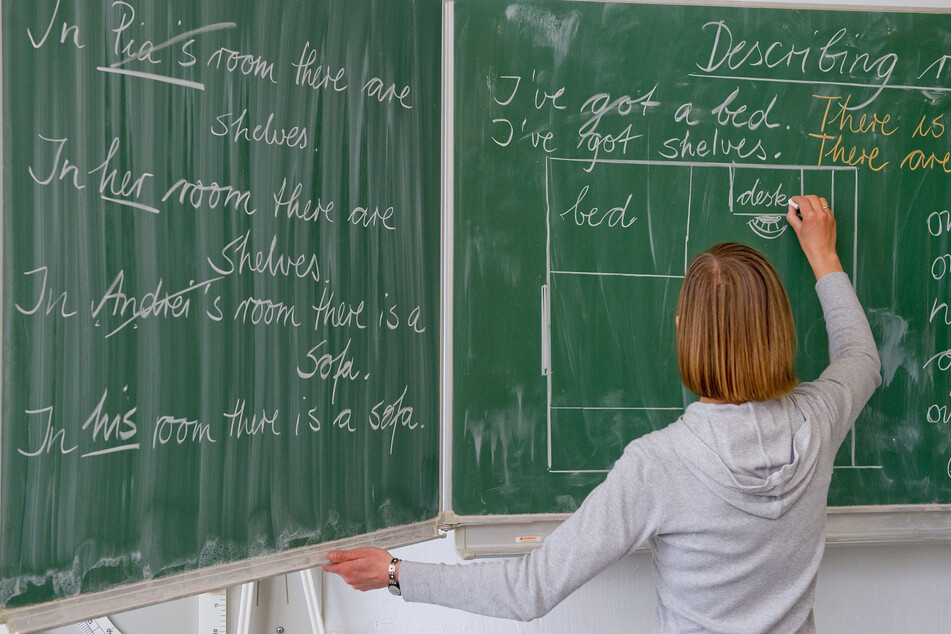 In Pia's room there are
shelves.
In her room there are
shelves.
In Andrei's room there is a
sofa.
In his room there is a sofa.
Describing
I've got a bed.
I've got shelves.
There is
There are
bed
desk